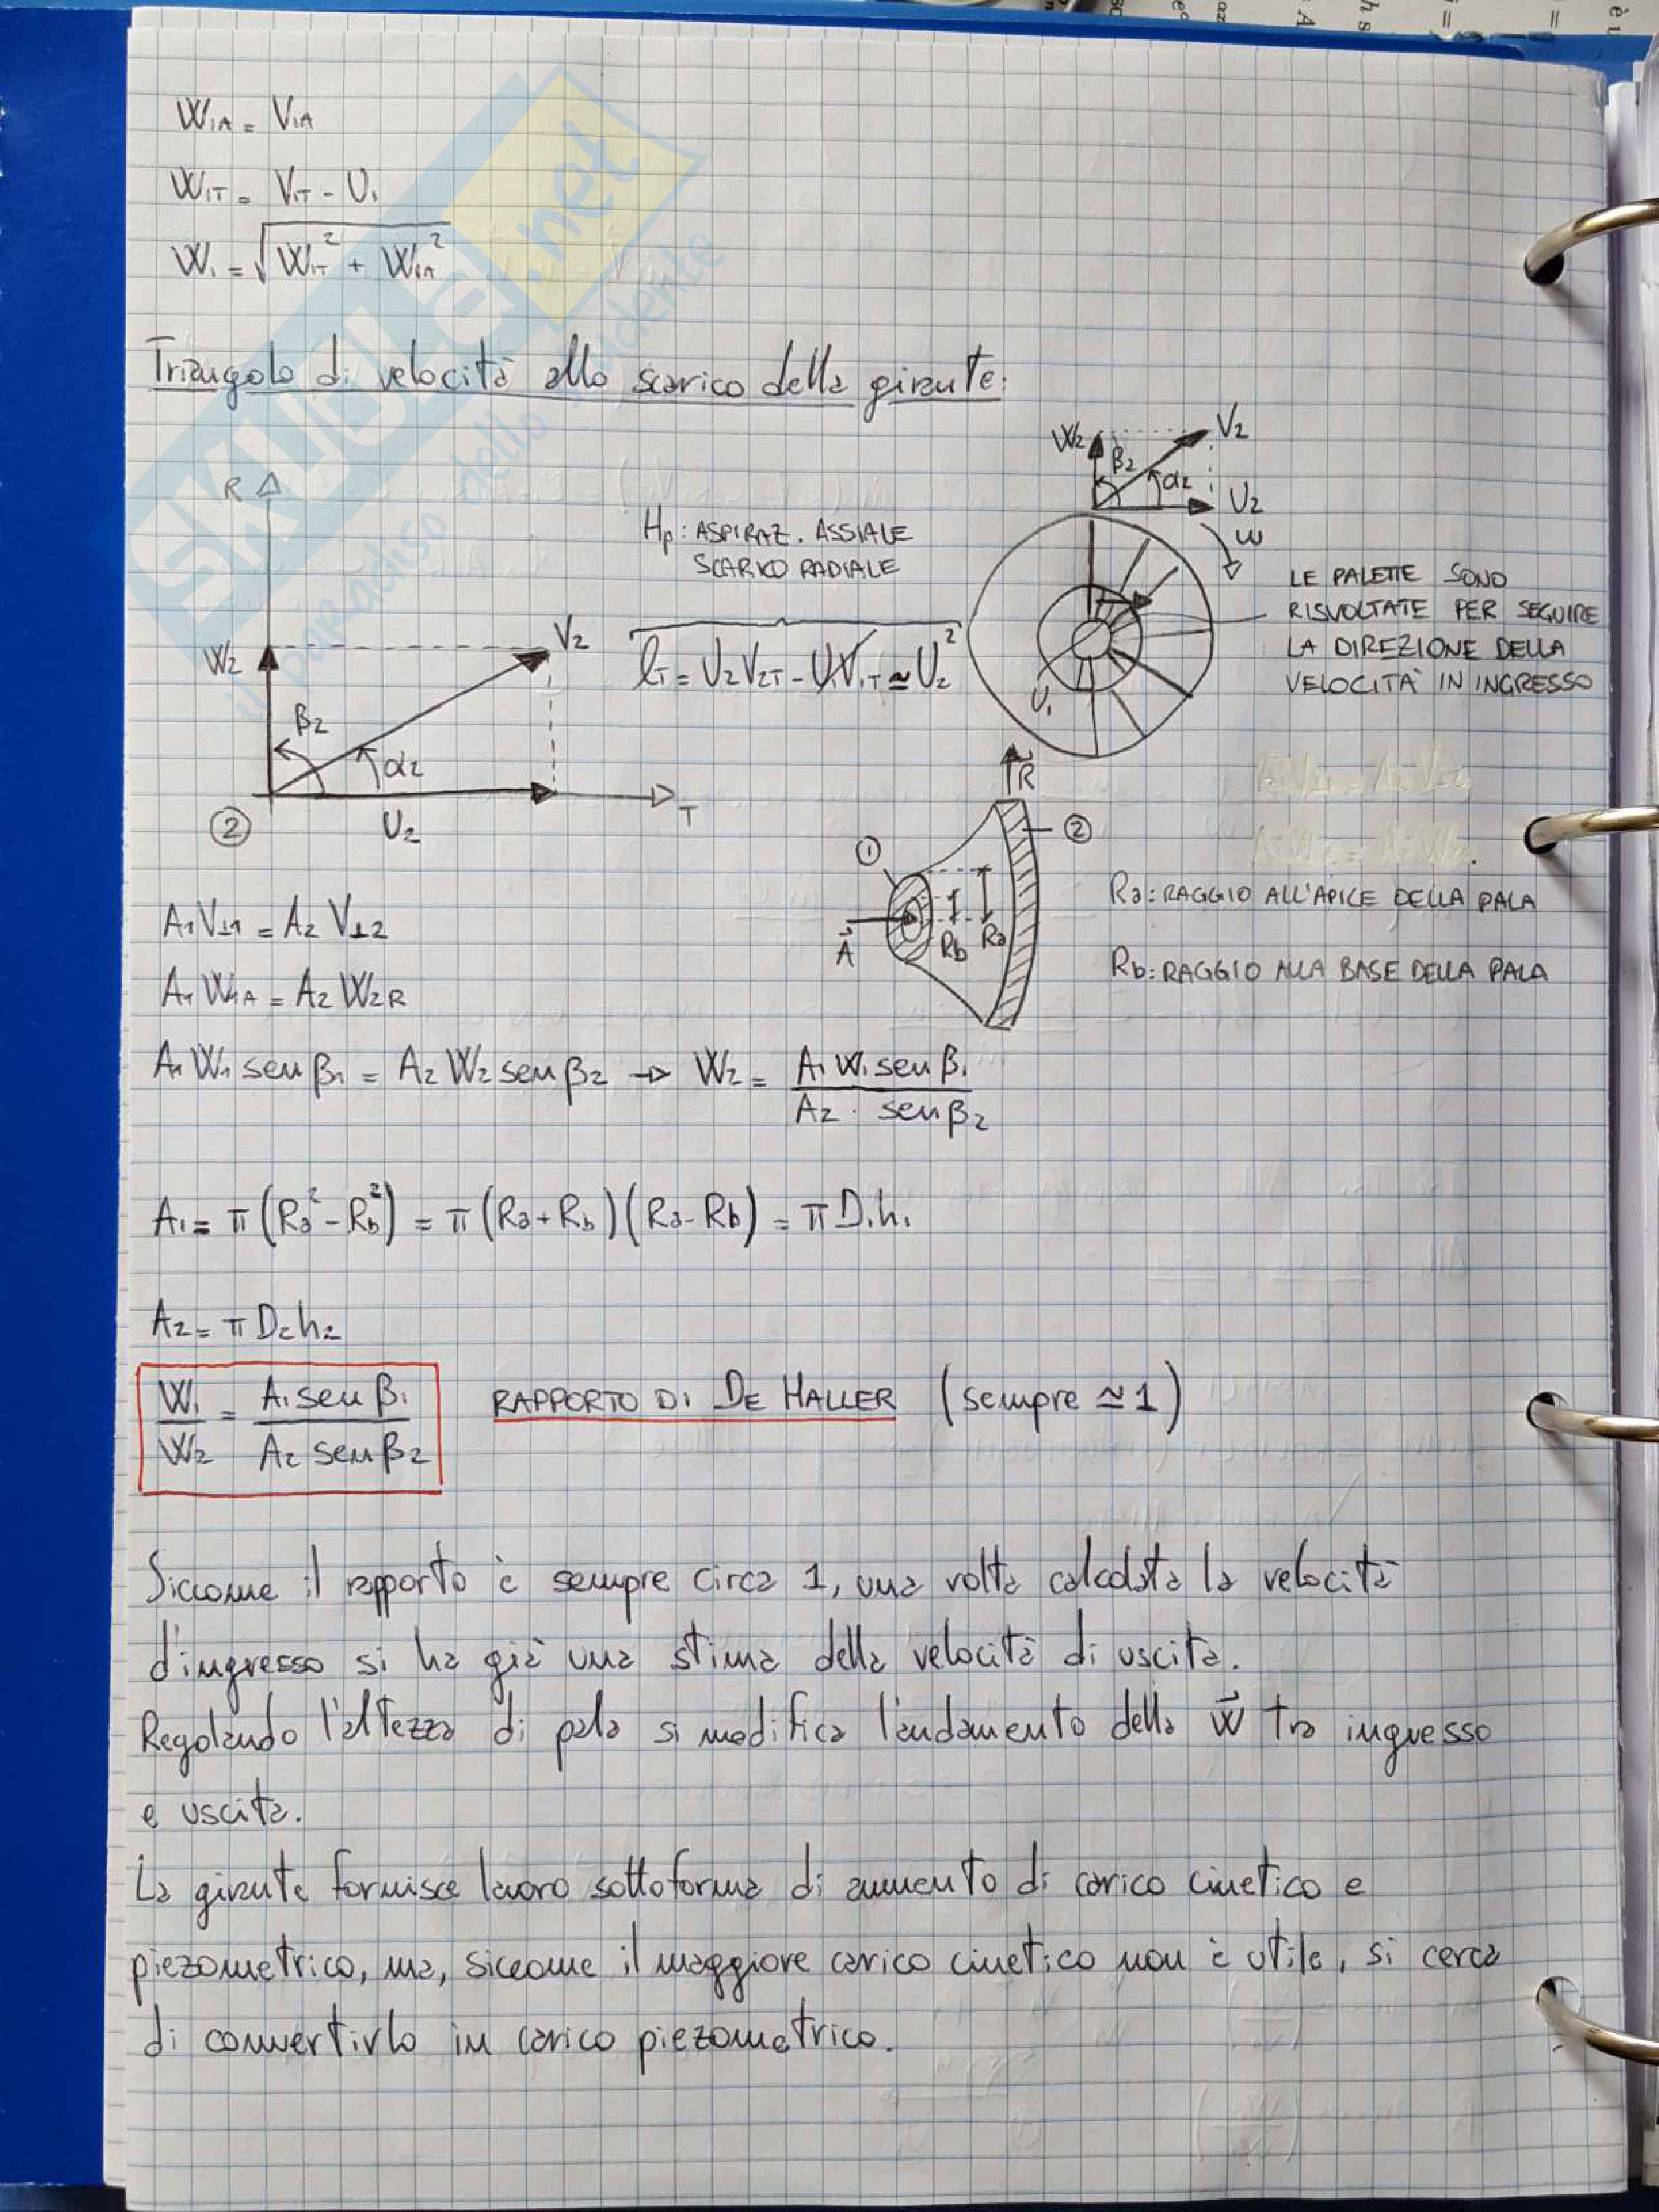 W1A = V1A
W1T = V1T - U1
W1 = √(W1T² + W1A²)
Triangolo di velocità allo scarico della girante:
R
W2
V2
β2
α2
U2
T
②
Hp: ASPIRAZ. ASSIALE
SCARICO RADIALE
lT = U2 V2T - U1 V1T ≃ U2²
W2
V2
β2
α2
U2
ω
U1
LE PALETTE SONO
RISVOLTATE PER SEGUIRE
LA DIREZIONE DELLA
VELOCITÀ IN INGRESSO
R
①
②
A
Rb
Ra
Ra: RAGGIO ALL'APICE DELLA PALA
Rb: RAGGIO ALLA BASE DELLA PALA
A1 V⊥1 = A2 V⊥2
A1 W1A = A2 W2R
A1 W1 sen β1 = A2 W2 sen β2 → W2 = A1 W1 sen β1 / A2 · sen β2
A1 = π (Ra² - Rb²) = π (Ra + Rb) (Ra - Rb) = π D1 h1
A2 = π D2 h2
W1 / W2 = A1 sen β1 / A2 sen β2
RAPPORTO DI DE HALLER (sempre ≃ 1)
Siccome il rapporto è sempre circa 1, una volta calcolata la velocità
d'ingresso si ha già una stima della velocità di uscita.
Regolando l'altezza di pala si modifica l'andamento della w tra ingresso
e uscita.
La girante fornisce lavoro sottoforma di aumento di carico cinetico e
piezometrico, ma, siccome il maggiore carico cinetico non è utile, si cerca
di convertirlo in carico piezometrico.
SKUOLA.net
il paradiso dello studente